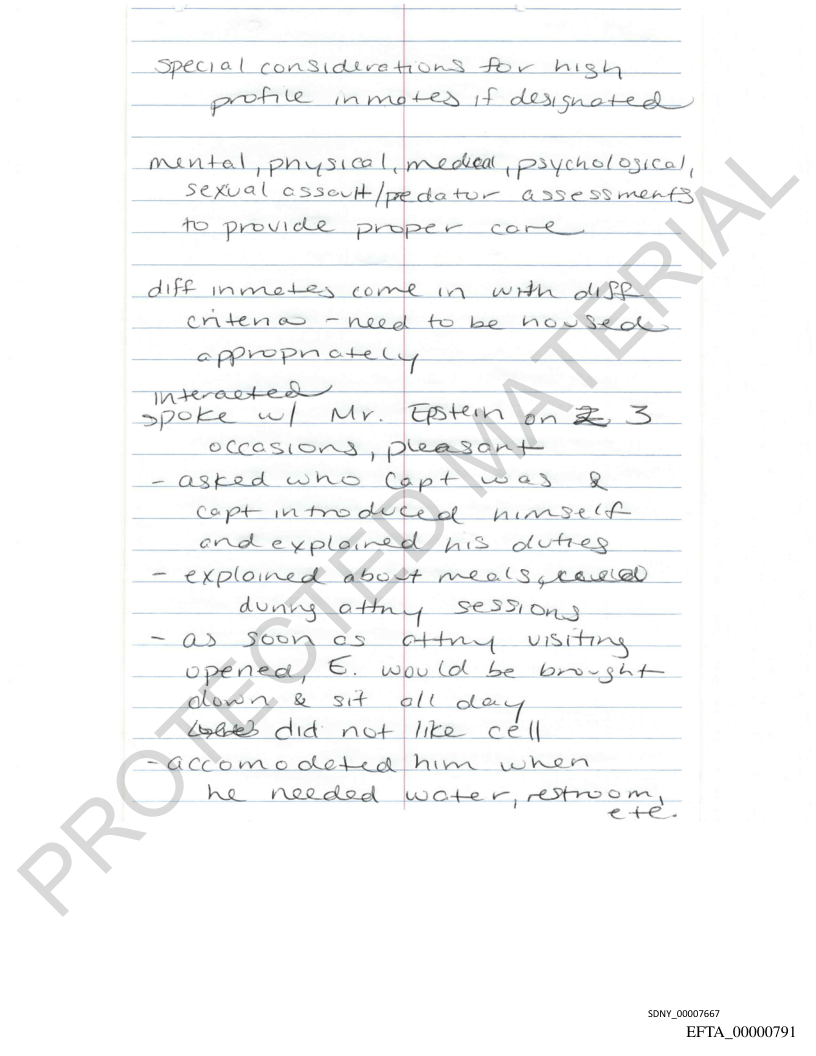 special considerations for high
profile inmates if designated
mental, physical, medical, psychological,
sexual assault/pedator assessments
to provide proper care
diff inmates come in with diff
criteria - need to be housed
appropriately
interacted
spoke w/ Mr. Epstein on 3
occasions, pleasant
- asked who Capt was &
capt introduced himself
and explained his duties
- explained about meals,
during attny sessions
- as soon as attny visiting
opened, E. would be brought
down & sit all day
did not like cell
- accomodated him when
he needed water, restroom,
etc.
PROTECTED MATERIAL
SDNY_00007667
EFTA_00000791